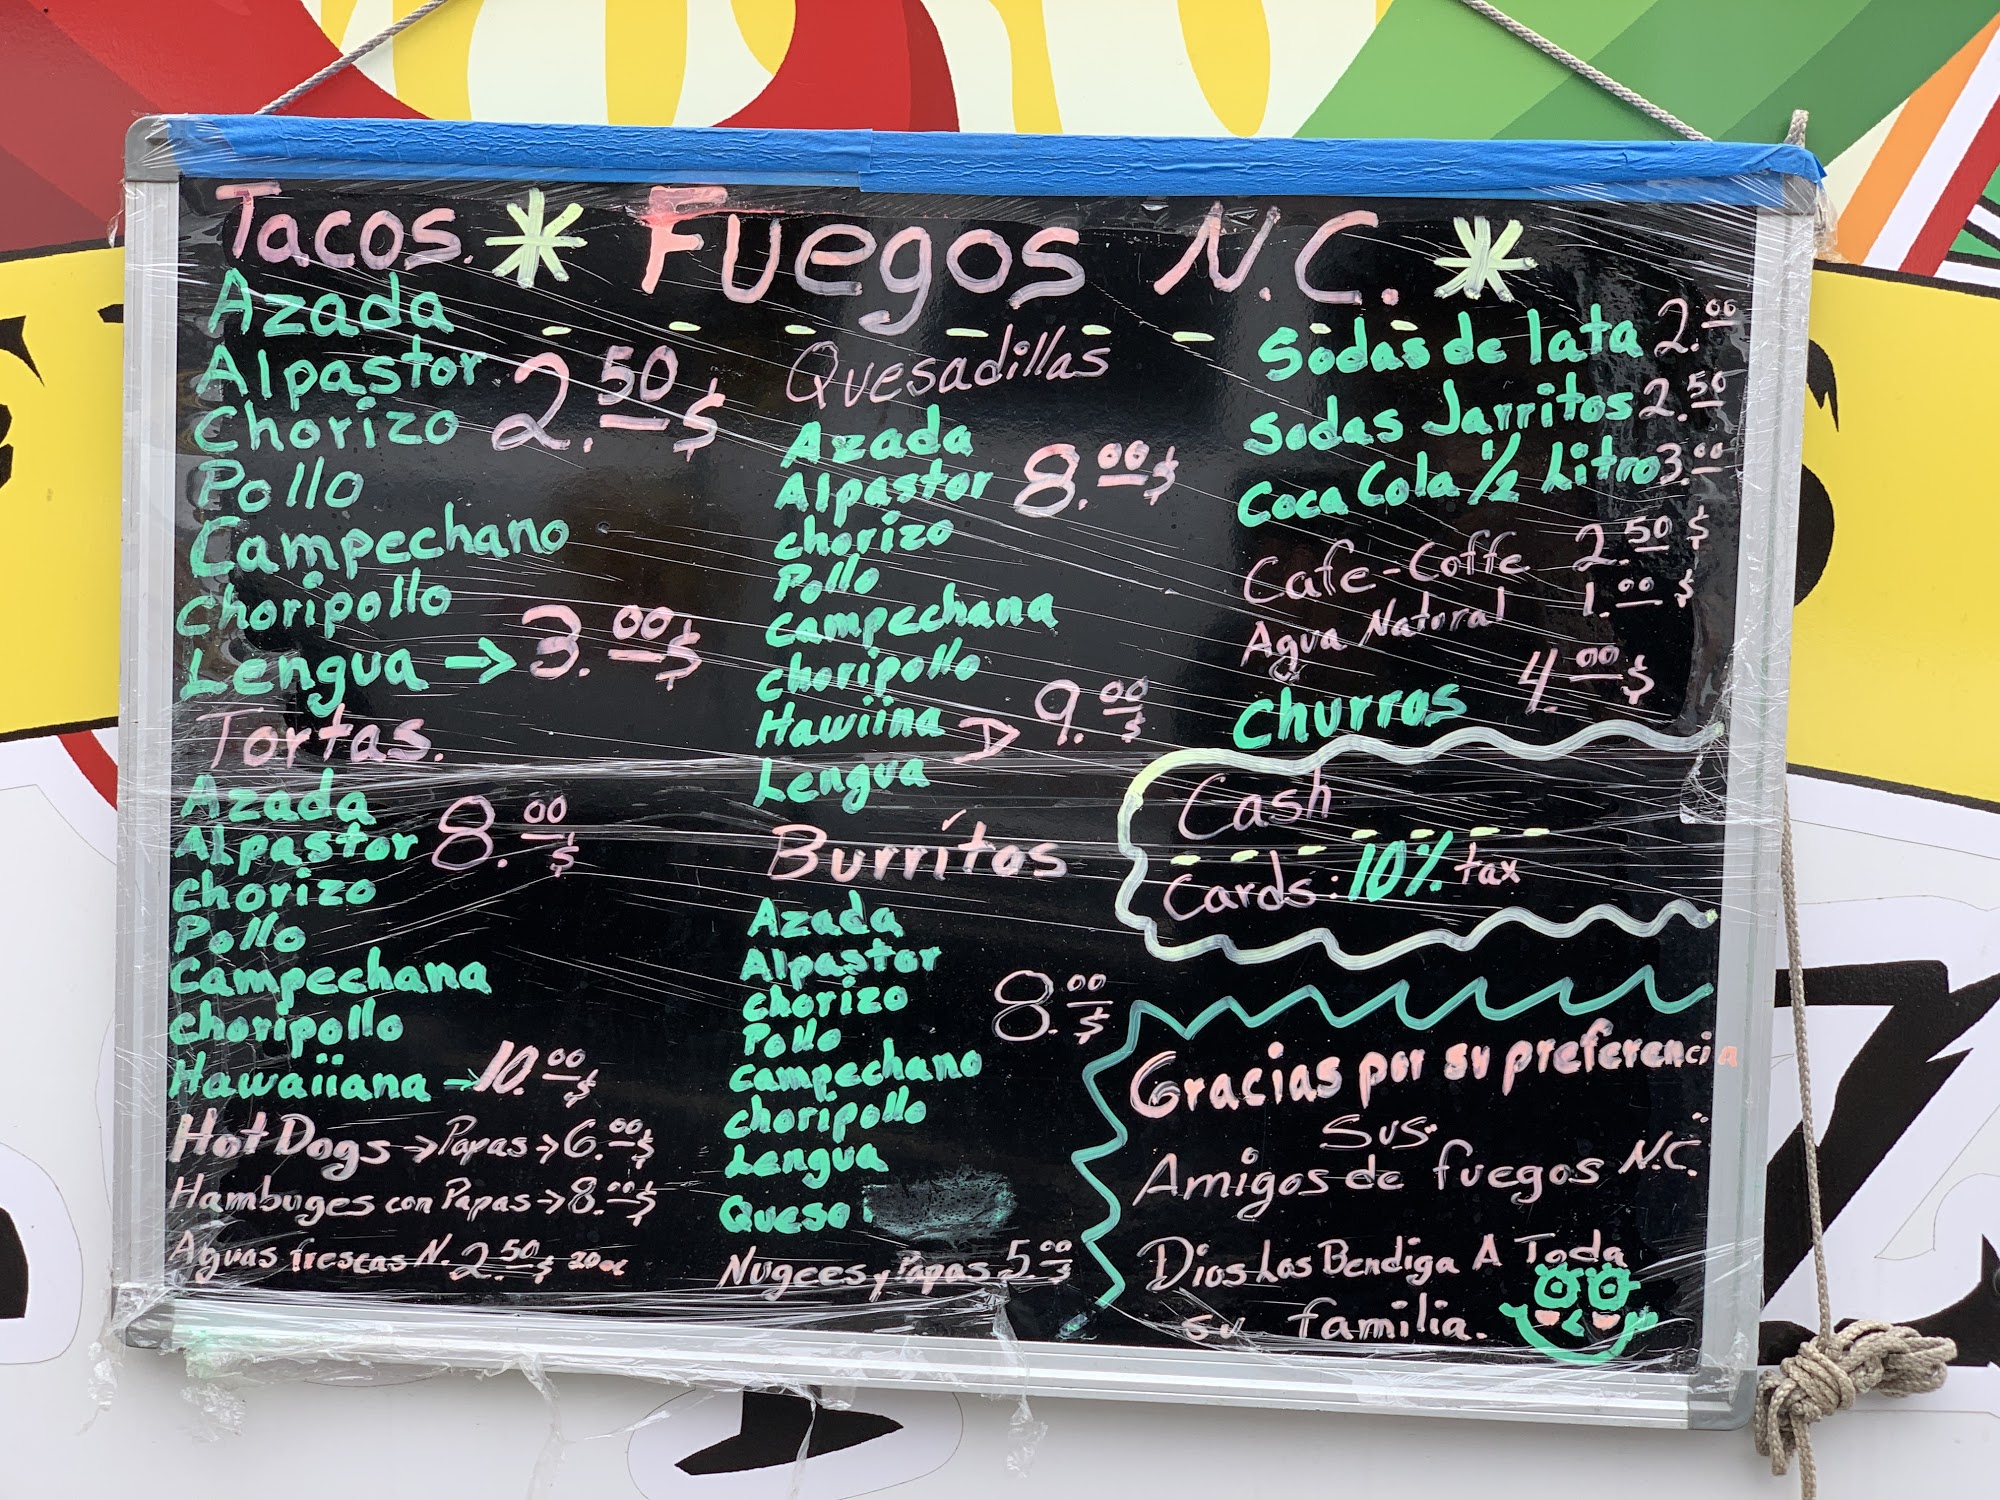 Tacos. * Fuegos N.C. *
Azada
Alpastor
Chorizo
2.50$
Pollo
Campechano
Choripollo
Lengua → 3.00$
Tortas.
Azada
Alpastor
8.00$
Chorizo
Pollo
Campechana
Choripollo
Hawaiiana → 10.00$
Hot Dogs → Papas → 6.00$
Hambuges con Papas → 8.00$
Aguas frescas N. 2.50$ 20oz
Quesadillas
Azada
Alpastor
8.00$
chorizo
Pollo
Campechana
choripollo
Hawiina
9.00$
Lengua
Burritos
Azada
Alpastor
chorizo
8.00$
Pollo
campechano
choripollo
Lengua
Queso
Nugees y Papas 5.00$
Sodas de lata 2.00
Sodas Jarritos 2.50
Coca Cola 1/2 Litro 3.00
Cafe-Coffe 2.50$
Agua Natural 1.00$
Churros 4.00$
Cash
Cards: 10% tax
Gracias por su preferencia
Sus
Amigos de fuegos N.C.
Dios Los Bendiga A Toda
su familia.